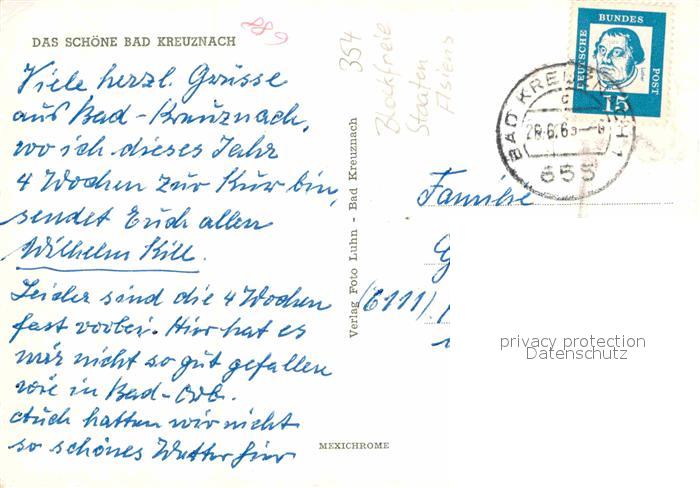 DAS SCHÖNE BAD KREUZNACH
Viele herzl. Grüsse
aus Bad-Kreuznach,
wo ich dieses Jahr
4 Wochen zur Kur bin,
sendet Euch allen
Wilhelm Kill.
Leider sind die 4 Wochen
fast vorbei. Hier hat es
mir nicht so gut gefallen
wie in Bad-Orb.
Auch hatten wir nicht
so schönes Wetter hier
Verlag Foto Luhn - Bad Kreuznach
MEXICHROME
354
Blockfreie
Staaten
Asiens
DEUTSCHE BUNDES POST
15
BAD KREUZNACH 1
c
655
Familie
(6111)
privacy protection
Datenschutz